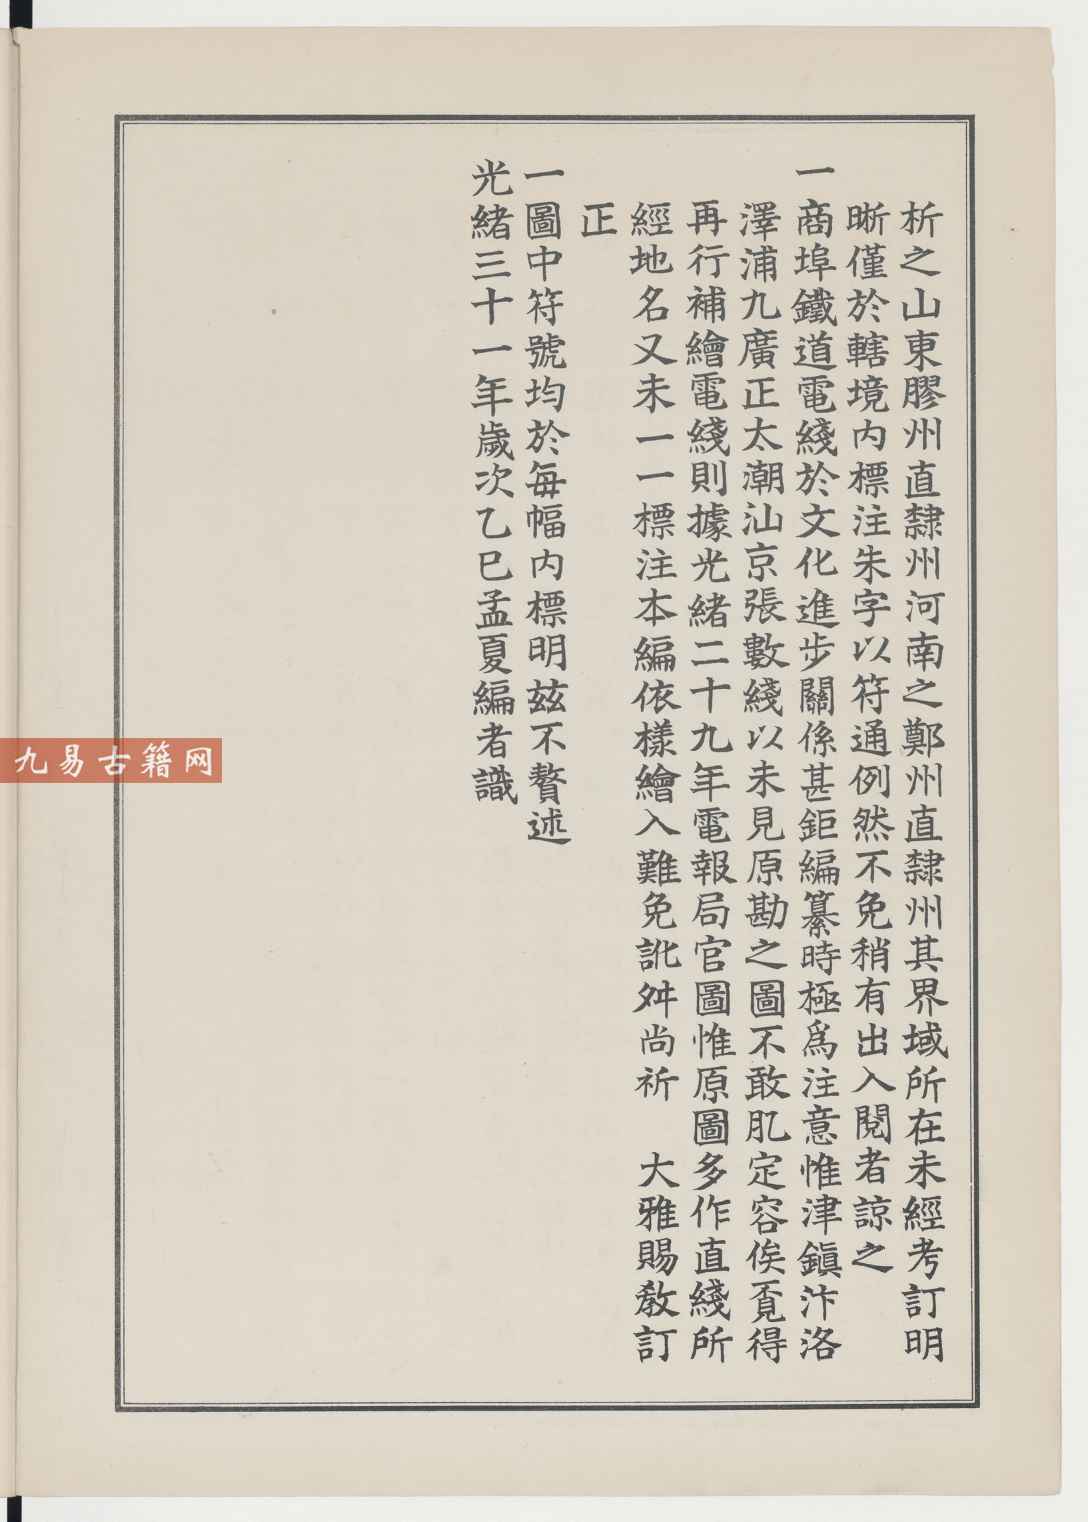 析之山東膠州直隸州河南之鄭州直隸州其界域所在未經考訂明
晰僅於轄境內標注朱字以符通例然不免稍有出入閱者諒之
一商埠鐵道電綫於文化進步關係甚鉅編纂時極爲注意惟津鎭汴洛
澤浦九廣正太潮汕京張數綫以未見原勘之圖不敢肊定容俟覔得
再行補繪電綫則據光緒二十九年電報局官圖惟原圖多作直綫所
經地名又未一一標注本編依樣繪入難免訛舛尚祈　大雅賜敎訂
正
一圖中符號均於每幅內標明玆不贅述
光緒三十一年歲次乙巳孟夏編者識
九易古籍网